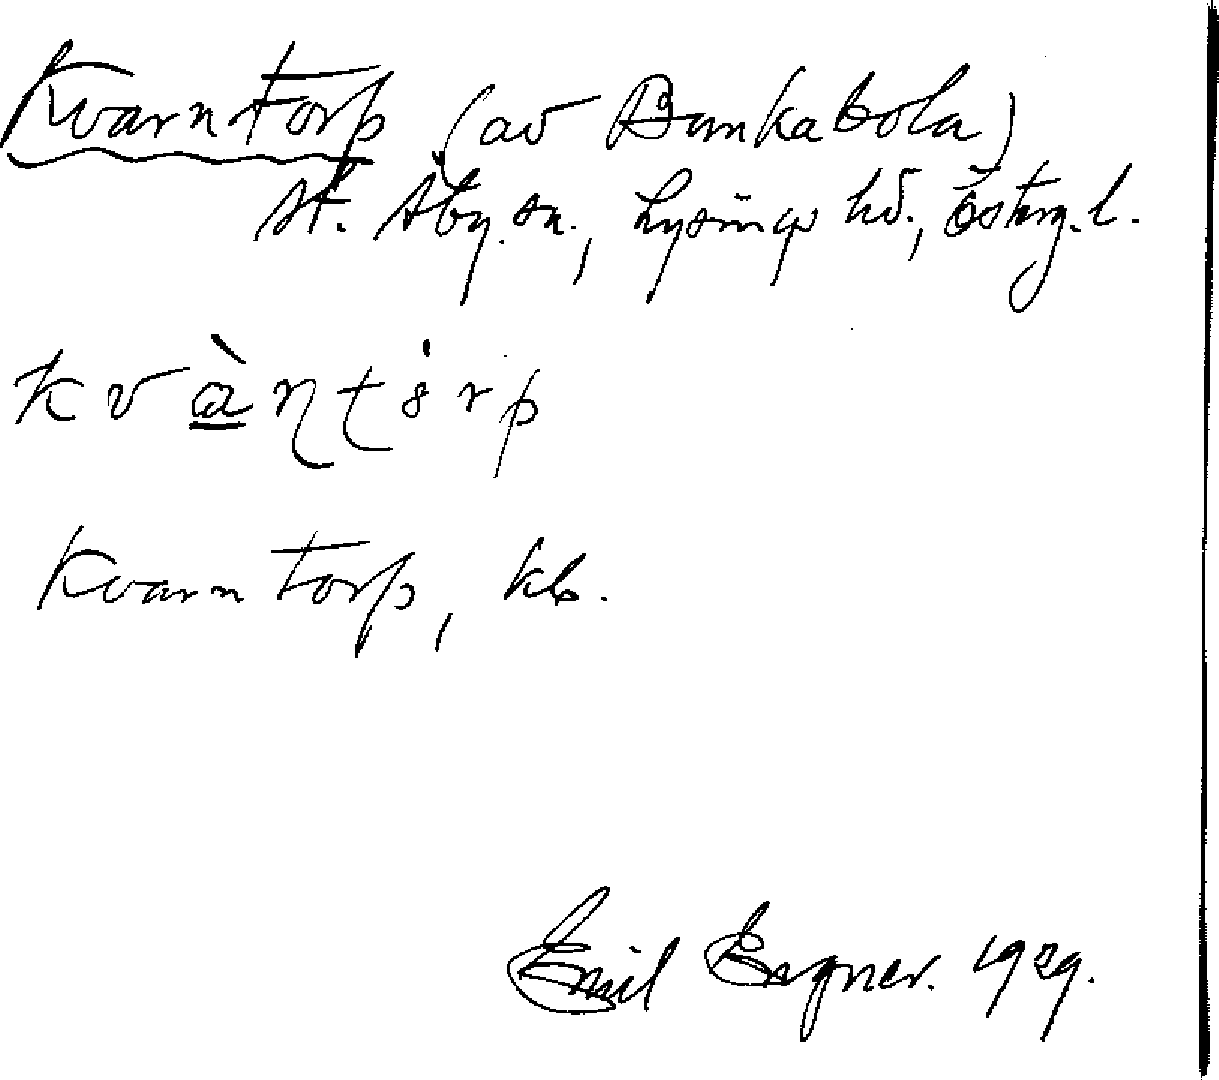 Kvarntorp (av Bunkabola)
St. Åby sn., Lysings hd., Österg. l.
kvàntorp
Kvarntorp, kb.
Emil 1929.